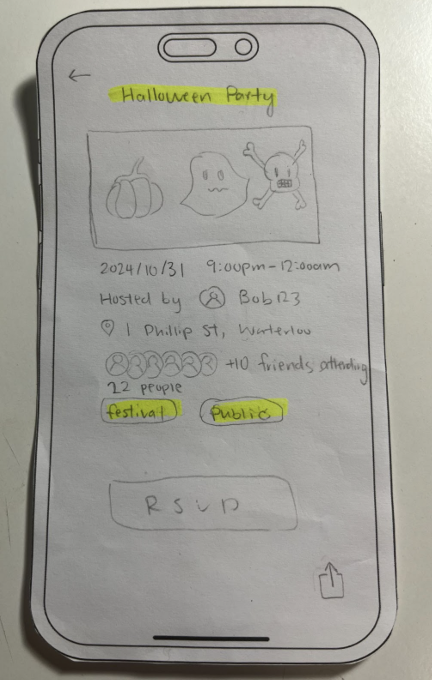 Halloween Party
2024/10/31 9:00pm-12:00am
Hosted by Bob123
1 Phillip St, Waterloo
+10 friends attending
22 people
festival public
RSVP